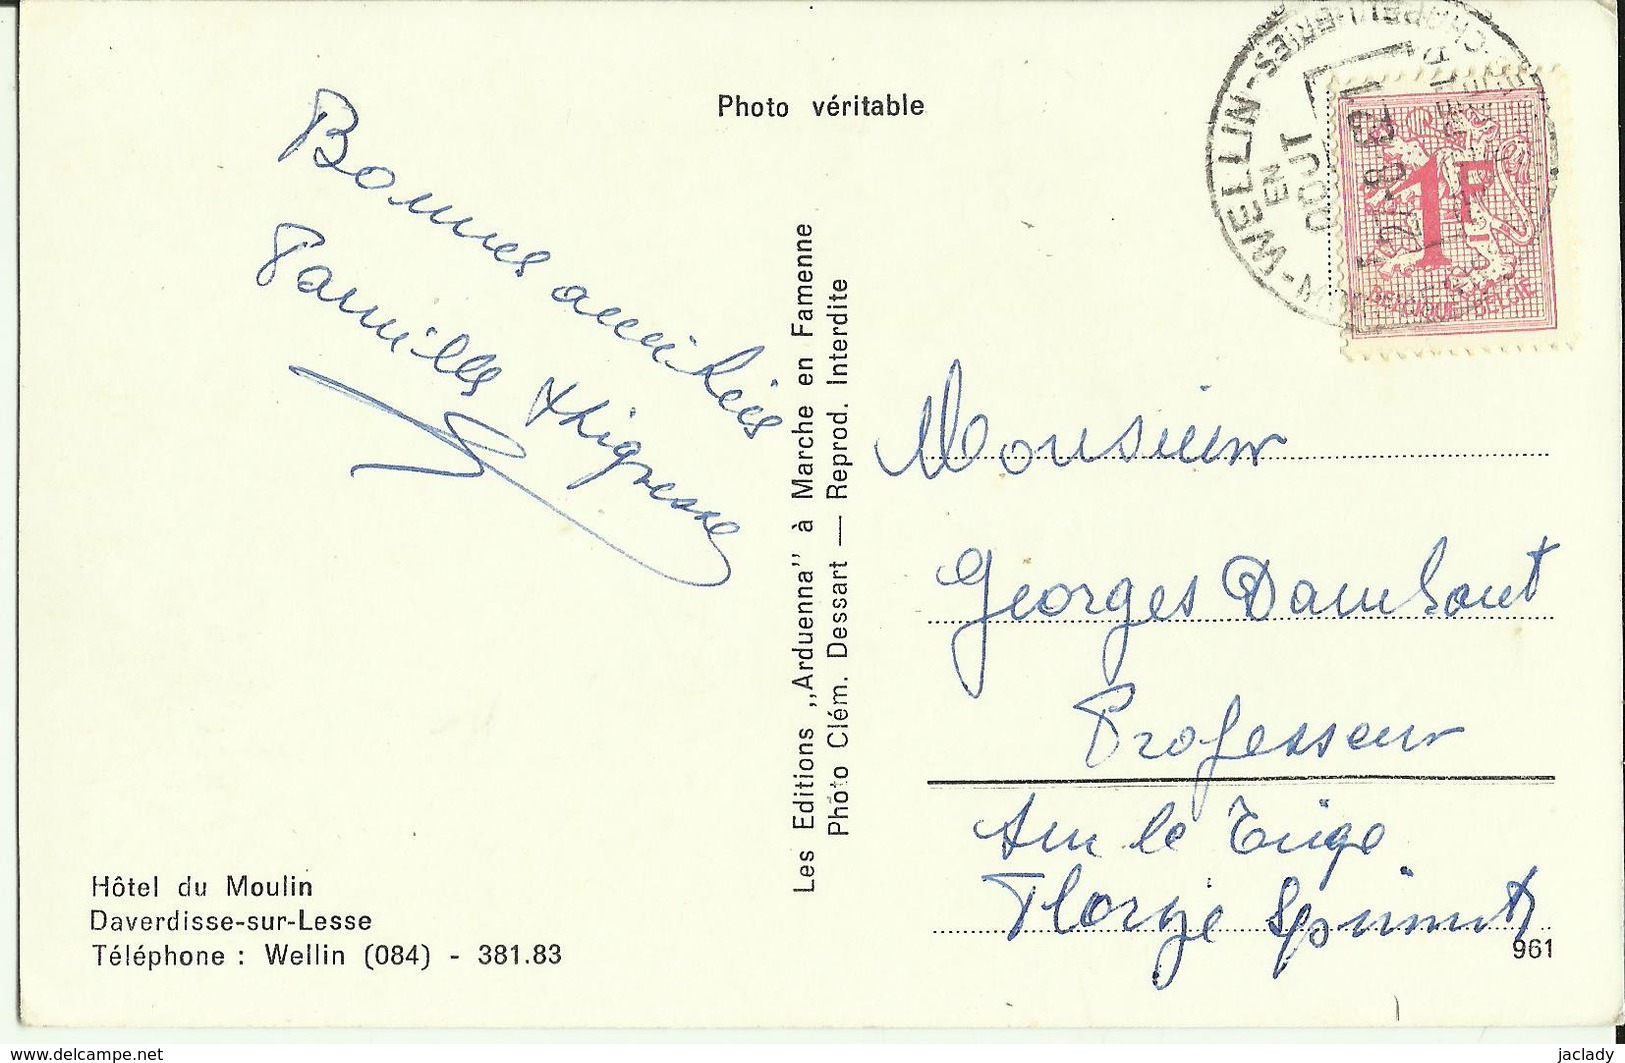 Photo véritable
Bonnes amitiés
Famille Thignesse
Les Editions ,,Arduenna" à Marche en Famenne
Photo Clém. Dessart — Reprod. Interdite
WELLIN
EN
AOUT
1F
BELGIQUE-BELGIE
Monsieur
Georges Dambont
Professeur
Sur le Tige
Florzé Sprimont
961
Hôtel du Moulin
Daverdisse-sur-Lesse
Téléphone : Wellin (084) - 381.83
www.delcampe.net
jaclady